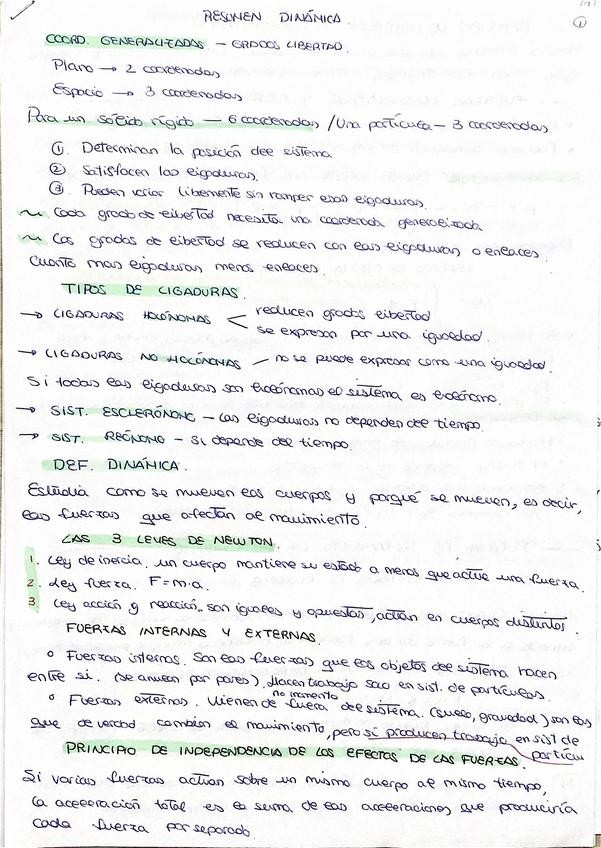 RESUMEN DINÁMICA.
①
COORD. GENERALIZADAS - GRADOS LIBERTAD.
Plano → 2 coordenadas
Espacio → 3 coordenadas
Para un sólido rígido - 6 coordenadas / Una partícula - 3 coordenadas
① Determinan la posición del sistema
② Satisfacen las ligaduras.
③ Pueden variar libremente sin romper esas ligaduras.
~ Cada grado de libertad necesita una coordenada generalizada
~ Los grados de libertad se reducen con las ligaduras o enlaces
Cuanto mas ligaduras menos enlaces.
TIPOS DE LIGADURAS.
→ LIGADURAS HOLÓNOMAS < reducen grados libertad
se expresan por una igualdad.
→ LIGADURAS NO HOLÓNOMAS - no se puede expresar como una igualdad.
Si todas las ligaduras son holónomas el sistema es holónomo.
→ SIST. ESCLERÓNONO - Las ligaduras no dependen del tiempo.
→ SIST. REÓNONO - Si depende del tiempo.
DEF. DINÁMICA.
Estudia como se mueven los cuerpos y porque se mueven, es decir,
las fuerzas que afectan al movimiento.
LAS 3 LEYES DE NEWTON.
1. Ley de inercia. un cuerpo mantiene su estado a menos que actue una fuerza.
2. Ley fuerza. F=m·a.
3 Ley acción y reacción.. son iguales y opuestas, actúan en cuerpos distintos.
FUERZAS INTERNAS Y EXTERNAS.
o Fuerzas internas. Son las fuerzas que los objetos del sistema hacen
entre si. (se anulan por pares). Hacen trabajo solo en sist. de partículas.
no momento
o Fuerzas externas. Vienen de fuera del sistema. (suelo, gravedad) son las
que de verdad cambian el movimiento, pero si producen trabajo en sist de
particu
PRINCIPO DE INDEPENDENCIA DE LOS EFECTOS DE LAS FUERZAS.
Si varias fuerzas actúan sobre un mismo cuerpo al mismo tiempo,
la aceleración total es la suma de las aceleraciones que produciría
cada fuerza por separado.